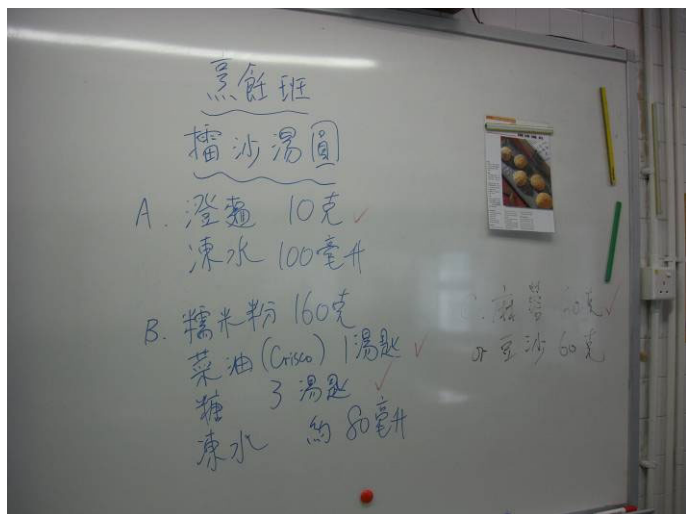 烹飪班
擂沙湯圓
A. 澄麵 10克
凍水 100毫升
B. 糯米粉 160克
菜油(Crisco) 1湯匙
糖 3湯匙
凍水 約80毫升
or 豆沙 60克